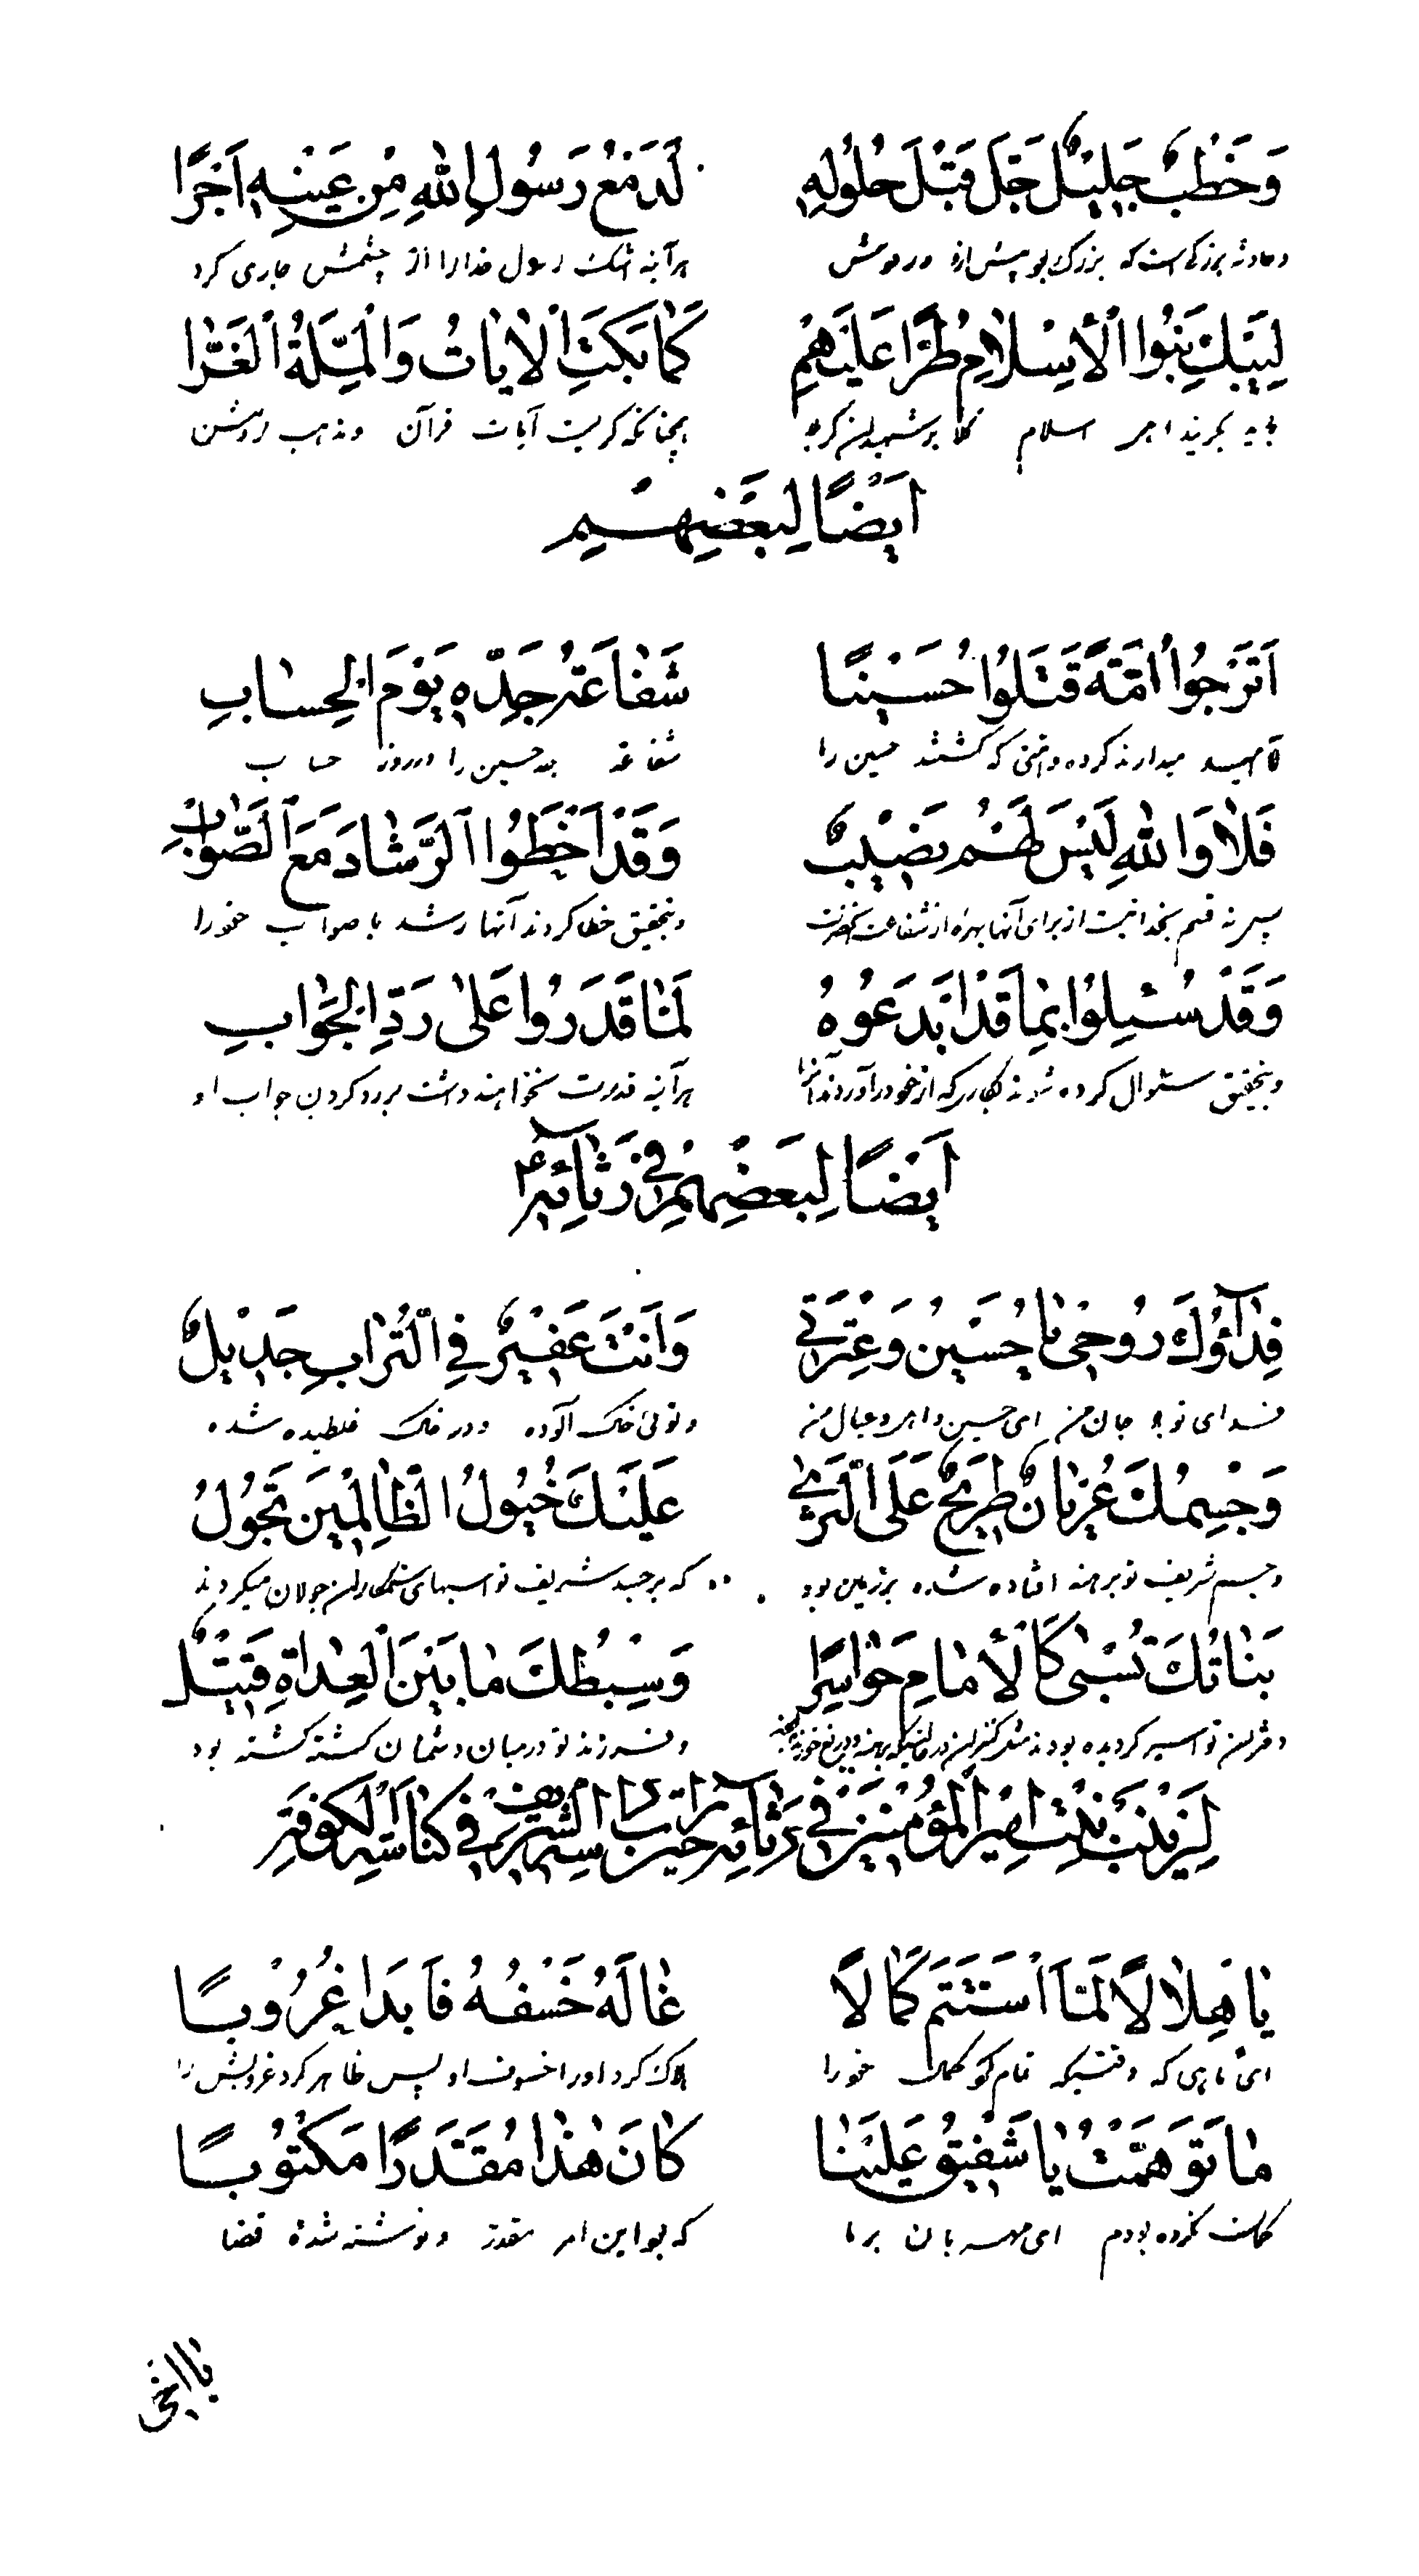 وَخَطْبٌ جَلِيْلٌ جَلَّ قَبْلَ حُلُولِهِ لَدَمْعُ رَسُولِ اللّٰهِ مِنْ عَيْنِهِ اَجْرًا
وحادثه بزرگی است که بزرگ بود پیش از ورودش هرآینه اشک رسول خدا را از چشمش جاری کرد
لِيَبْكِ بَنُوا الْأِسْلَامِ طُرًّا عَلَيْهِمِ كَمَا بَكَتِ الْاٰيَاتُ وَالْمِلَّةُ الْغَرَّا
باید بگریند اهل اسلام کلا بر شهیدان کربلا همچنانکه گریست آیات قرآن ومذهب روشن
اَيْضًا لِبَعْضِهِمْ
اَتَرْجُوا اُمَّةً قَتَلُوا حُسَيْنًا شَفَاعَةَ جَدِّهِ يَوْمَ الْحِسَابِ
آیا امید میدارند گروه وامتی که کشتند حسین را شفاعة جد حسین را در روز حساب
فَلَا وَاللّٰهِ لَيْسَ لَهُمْ نَصِيْبٌ وَقَدْ اَخْطَوُا الرَّشَادَ مَعَ الصَّوَابِ
پس نه قسم بخدا نیست از برای آنها بهره از شفاعت آنحضرت وبتحقیق خطا کردند آنها رشد با صواب خود را
وَقَدْ سُئِلُوا بِمَا قَدْ اَبْدَعُوهُ لَمَا قَدَرُوا عَلٰى رَدِّ الْجَوَابِ
وبتحقیق سئوال کرده شوند بکاریکه از خود درآوردند آنرا هرآینه قدرت نخواهند داشت بر رد کردن جواب او
اَيْضًا لِبَعْضِهِمْ فِي رَثَائِهِ ع
فِدَاؤُكَ رُوحِيْ يَا حُسَيْنُ وَعِتْرَتِيْ وَاَنْتَ عَفِيْرٌ فِي التُّرَابِ جَدِيْلٌ
فدای تو باد جان من ای حسین واهل وعیال من وتوئی خاک آلوده ودر خاک غلطیده شده
وَجِسْمُكَ عُرْيَانٌ طَرِيْحٌ عَلَى الثَّرٰى عَلَيْكَ خُيُولُ الظَّالِمِيْنَ تَجُولُ
وجسم شریف تو برهنه افتاده شده بر زمین بود که بر جسد شریف تو اسبهای ستمکاران جولان میکردند
بَنَاتُكَ تُسْبٰى كَالْأِمَاءِ حَوَاسِرًا وَسِبْطُكَ مَا بَيْنَ الْعِدَاةِ قَتِيْلٌ
دختران تو اسیر کردیده بودند مثل کنیزان در حالتیکه برهنه وفرزند تو درمیان دشمنان کشته کشته بود
لِزَيْنَبَ بِنْتِ اَمِيْرِ الْمُؤْمِنِيْنَ فِي رَثَائِهِ حِيْنَ رَاَتْ رَأْسَهُ الشَّرِيْفَ فِي كُنَاسَةِ الْكُوفَةِ
يَا هِلَالًا لَمَّا اسْتَتَمَّ كَمَالًا غَالَهُ خَسْفُهُ فَاَبَدَا غُرُوبًا
ای ماهی که وقتیکه تمام کرد کمال خود را هلاک کرد او را خسوف او پس ظاهر کرد غروبش را
مَا تَوَهَّمْتُ يَا شَفِيْقُ عَلَيْنَا كَانَ هٰذَا مُقَدَّرًا مَكْتُوبًا
گمان نکرده بودم ای مهربان بر ما که بود این امر مقدر ونوشته شدهٔ قضا
يَا اَخِيْ